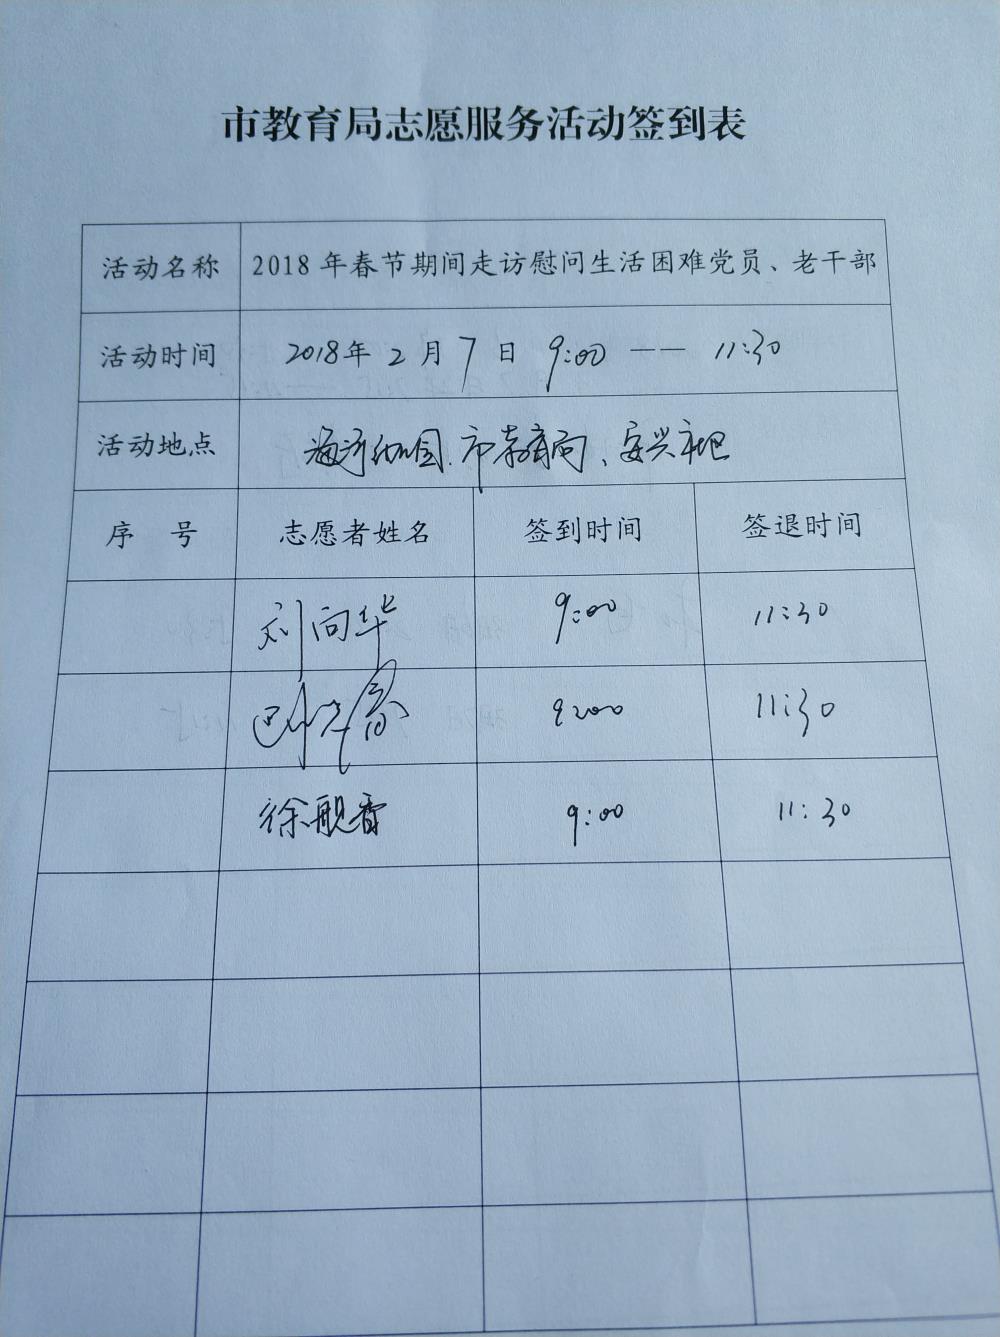 市教育局志愿服务活动签到表
活动名称 2018年春节期间走访慰问生活困难党员、老干部
活动时间 2018年 2 月 7 日 9:00 —— 11:30
活动地点 幼园、市教育局、安兴社区
序 号 志愿者姓名 签到时间 签退时间
刘向华 9:00 11:30
9:00 11:30
徐靓香 9:00 11:30